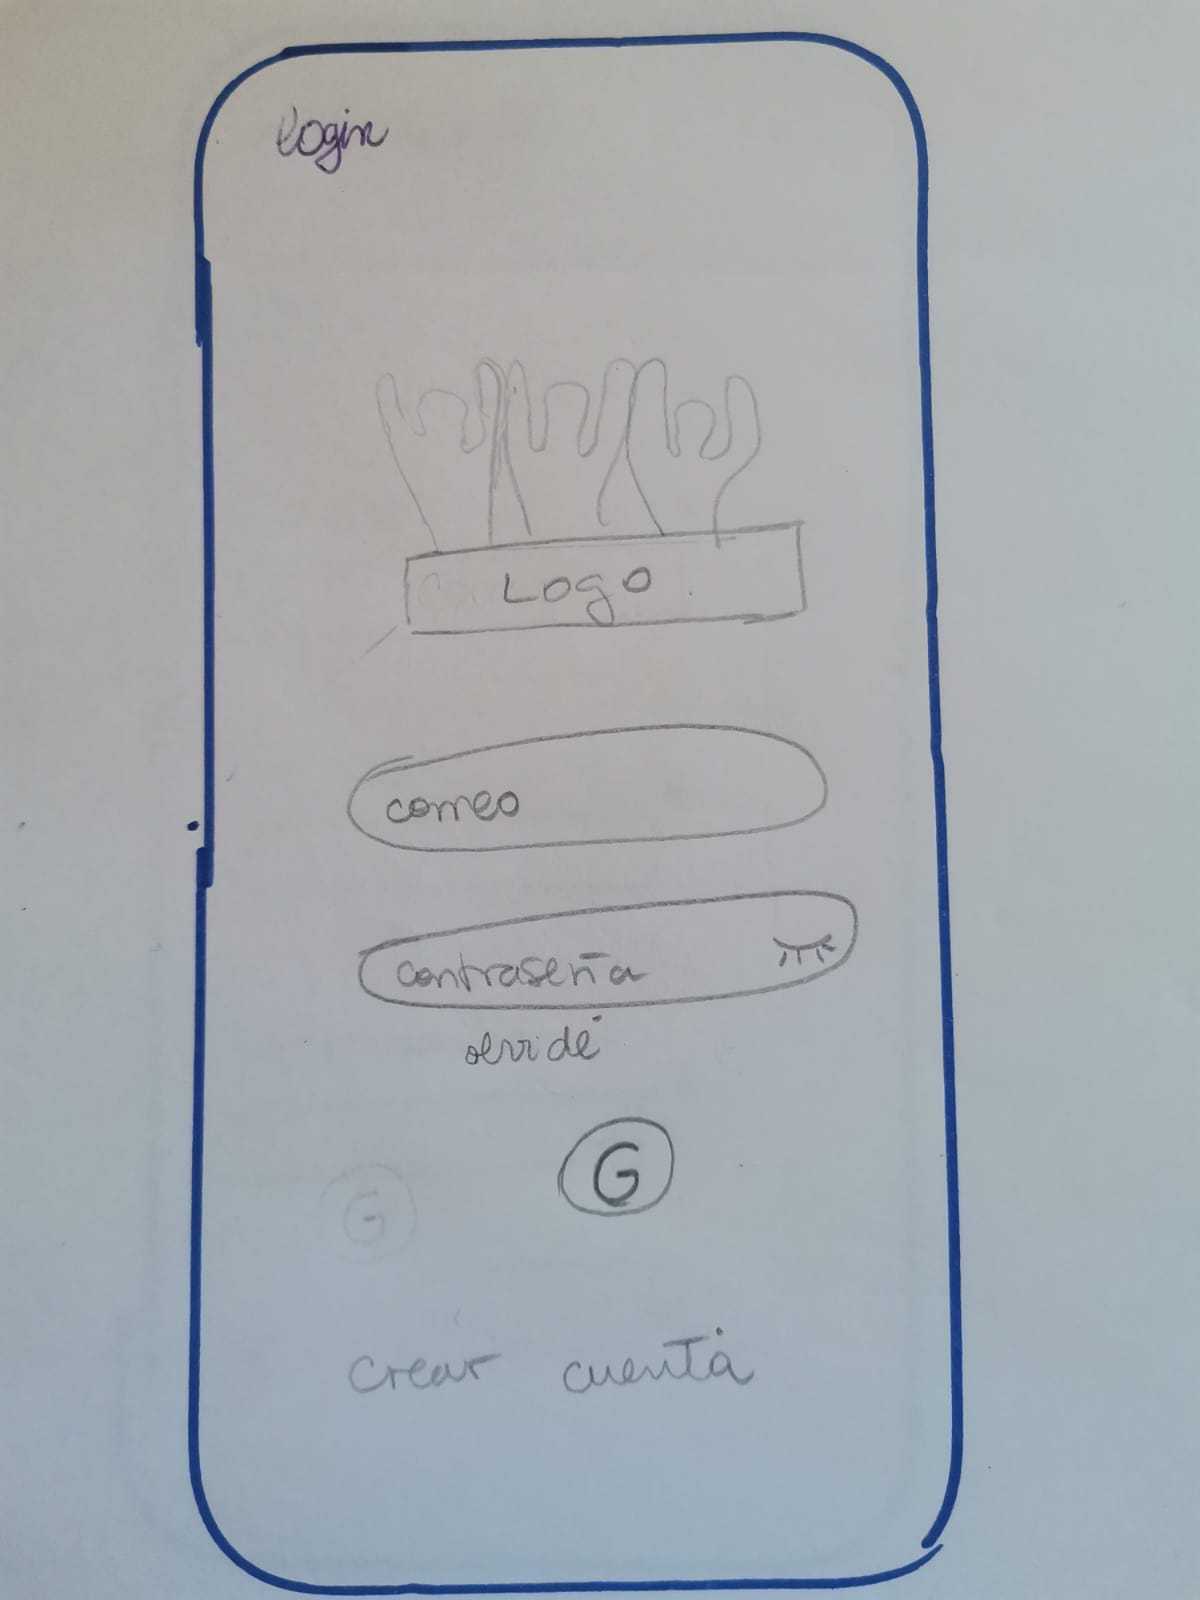 Login
Logo
correo
contraseña
olvidé
G
G
crear cuenta